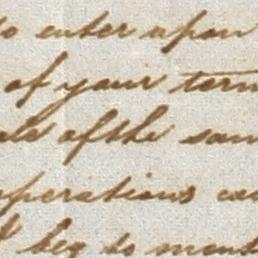 to enter upon
of your term
of the sam
operations
I beg to